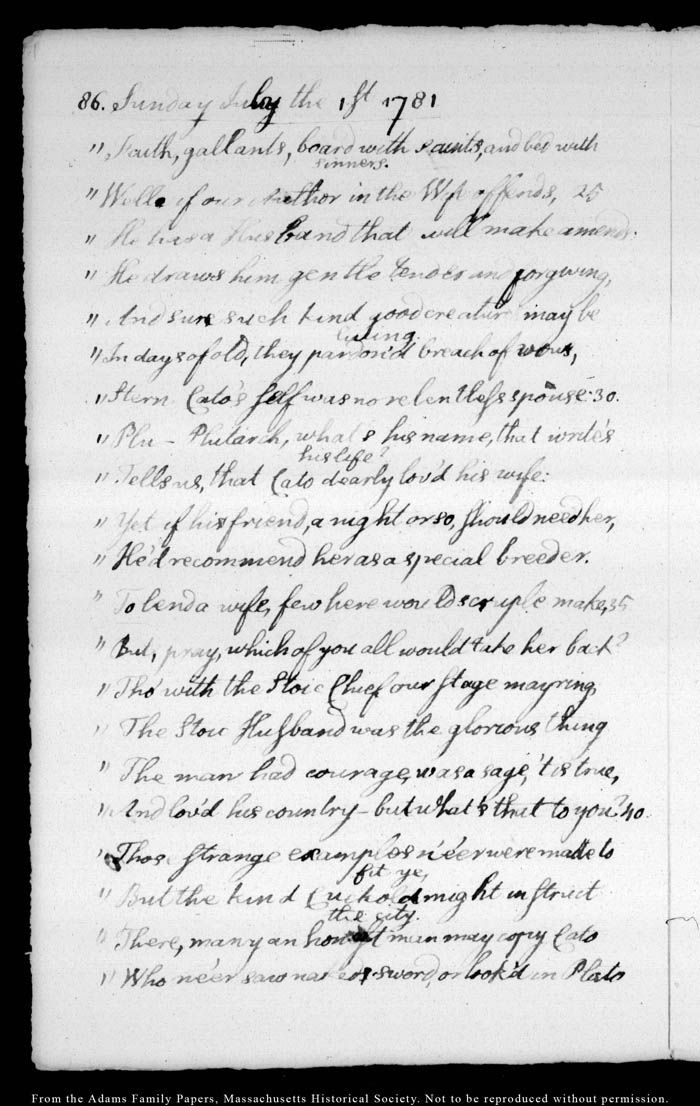 86. Sunday July the 1st 1781
" Faith, gallants, board with saints, and bed with
sinners.
" Well if our Author in the Wife offends, 25
" He has a Husband that will make amends.
" He draws him gentle tender and forgiving,
" And sure such kind good creatures may be
living.
" In days of old, they pardon'd breach of vows,
" Stern Cato's self was no relentless spouse: 30.
" Plu - Plutarch, what's his name, that write's
his life?
" Tells us, that Cato dearly lov'd his wife:
" Yet if his friend, a night or so, should need her,
" He'd recommend her as a special breeder.
" To lend a wife, few here would scruple make, 35
" But, pray, which of you all would take her back?
" Tho' with the Stoic Chief our stage may ring,
" The Stoic Husband was the glorious thing
" The man had courage, was a sage, 't is true,
" And lov'd his country - but what's that to you? 40.
" Those strange examples n'e'er were made to
fit ye,
" But the kind Cuckold might instruct
the city.
" There, many an honest man may copy Cato
" Who ne'er saw naked sword, or look'd in Plato
From the Adams Family Papers, Massachusetts Historical Society. Not to be reproduced without permission.